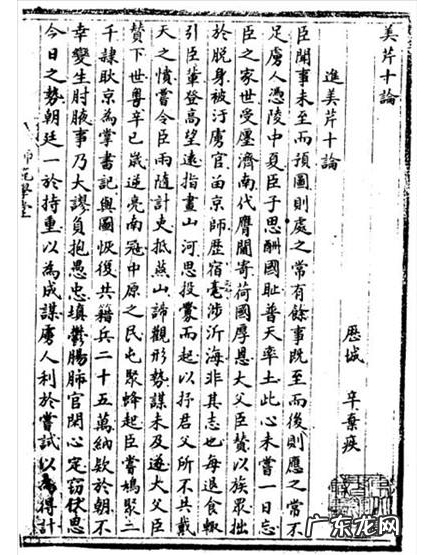 美芹十論
進美芹十論
歷城 辛棄疾
臣聞事未至而預圖則處之常有餘事既至而後則應之常不
足虜人憑陵中夏臣子思酬國恥普天率土此心未嘗一日忘
臣之家世受廛濟南代膺閫寄荷國厚恩大父臣贊以族眾拙
於脫身被汙虜官苗京師歷宿亳涉沂海非其志也每退食輙
引臣輩登高望遠指畫山河思投釁而起以抒君父所不共戴
天之憤嘗令臣雨隨計吏抵燕山諦觀形勢謀未及遂大父臣
贊下世粵辛已歲逆亮南寇中原之民屯聚蜂起臣嘗鳩聚二
千隸耿京為掌書記與圖恢復共籍兵二十五萬納欵於朝不
幸變生肘腋事乃大謬負抱愚忠填鬱腸肺官閑心定竊伏思
今日之勢朝廷一於持重以為成謀虜人利於嘗試以為得計
广东龙网